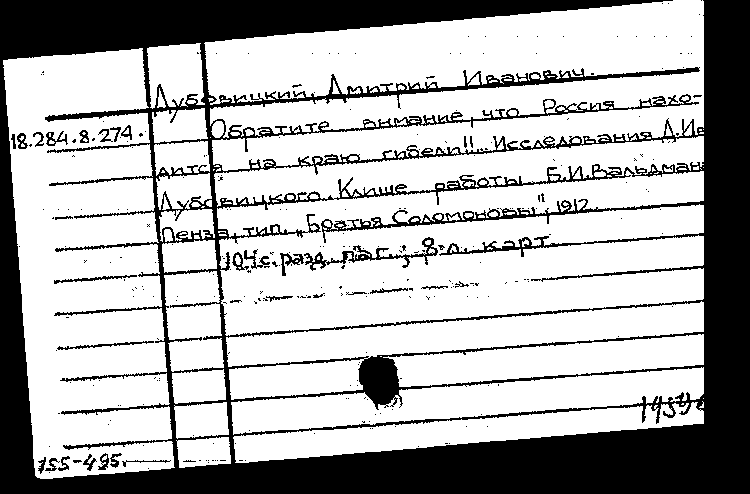 Дубовицкий, Дмитрий Иванович.
18.284.8.274.
Обратите внимание, что Россия нахо-
дится на краю гибели!! Исследования Д.Ив
Дубовицкого. Клише работы Б.И.Вальдмана
Пенза, тип. „Братья Соломоновы", 1912.
104 с. разд. паг.; 8 л. карт.
155-495.